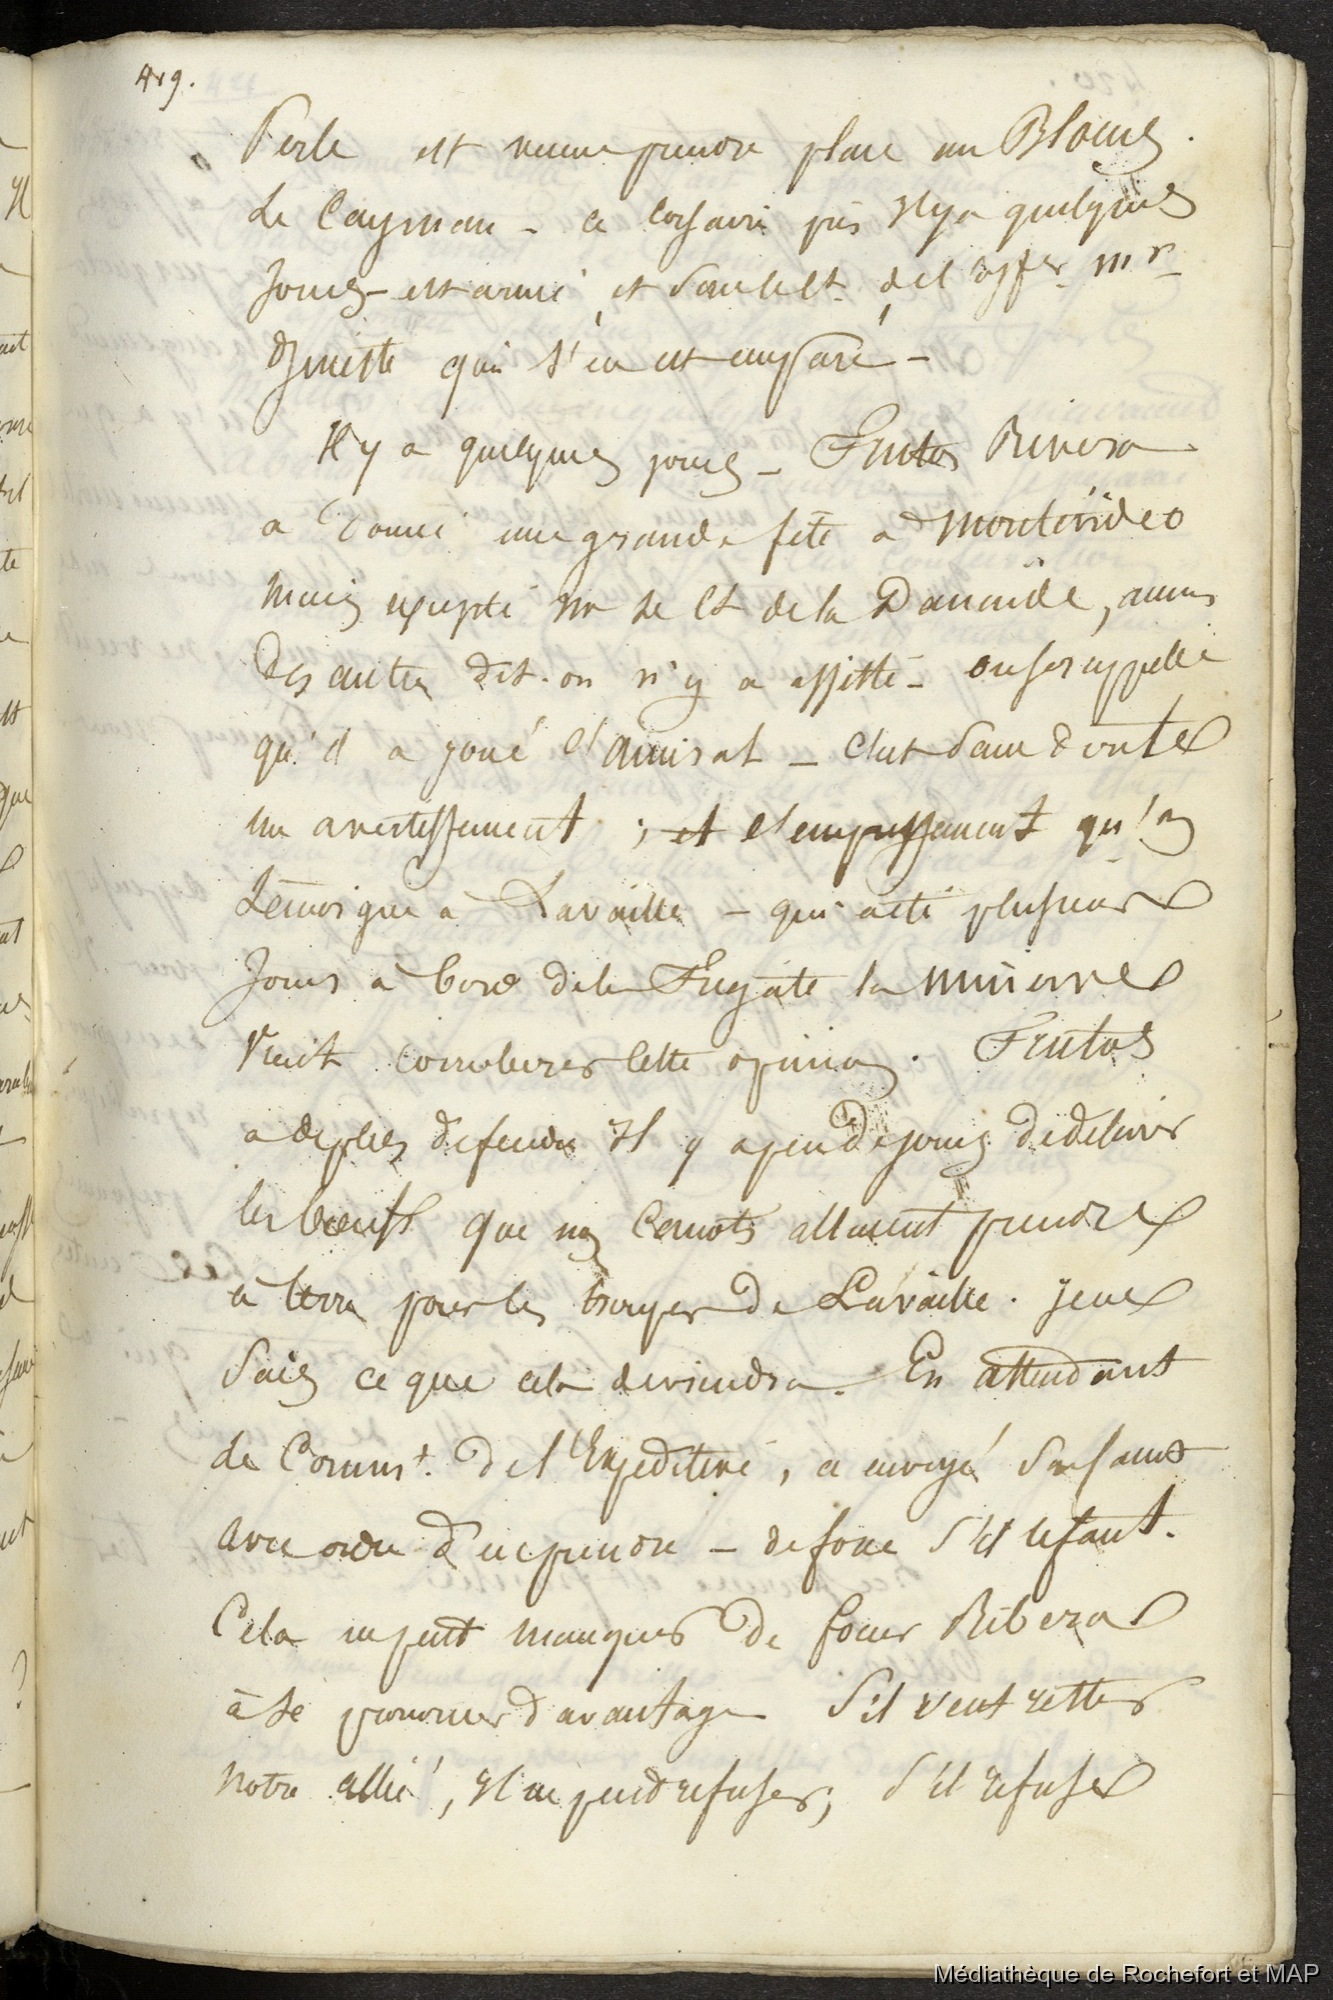 419.
Perle est venue prendre place au Blocus.
Le Cayman - ce corsaire pris Il y a quelques
Jours - est armé, et sous le Lt. de l'offer. Mr
qui s'en est emparé -
Il y a quelques jours - Frutos Rivera
a donné une grande fête a Montévidéo
Mais excepté Mr le Ct de la Danaïde, aucun
Des autres dit-on n'y a assisté - on se rappelle
qu'il a joué l'amiral - C'est sans doute
un avertissement ; et l'empressement qu'on
témoigne à Lavalle - qui a été plusieurs
Jours à bord de la Frégate la Minerve
Vient corroborer cette opinion. Frutos
a de plus défendu Il y a peu de jours de délivrer
les bœufs que nos Canots allaient prendre
à terre pour les troupes de Lavalle. Je ne
Sais ce que cela deviendra. En attendant
Le Comm.t De l'Expéditive, a envoyé
avec ordre d'en prendre - de force s'il le faut.
Cela ne peut manquer de forcer Ribera
à se prononcer d'avantage S'il veut rester
Notre allié, Il ne peut refuser; S'il refuse
Médiathèque de Rochefort et MAP